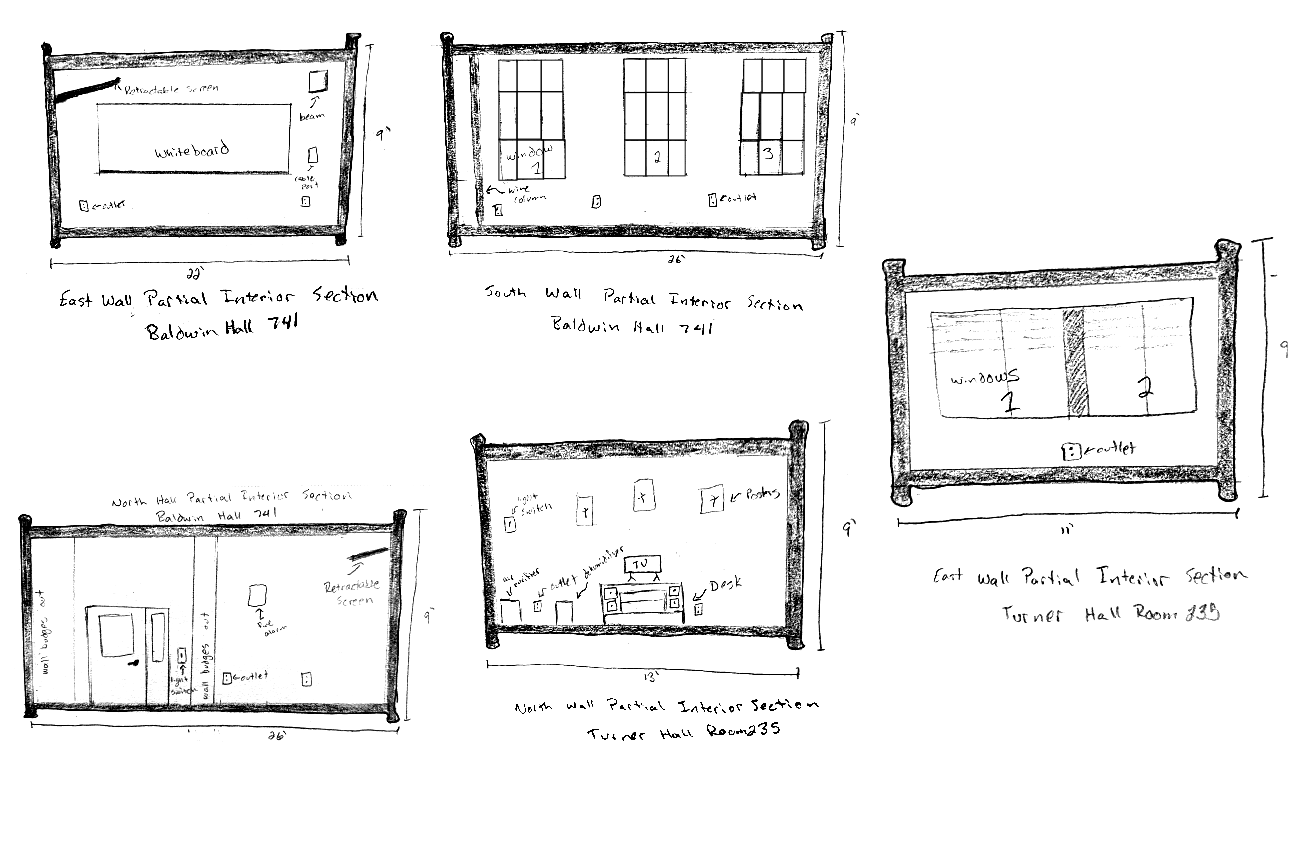 Retractable Screen
beam
Whiteboard
cable
port
outlet
9'
22'
East Wall Partial Interior Section
Baldwin Hall 741
window
1
2
3
wire
column
outlet
9'
26'
South Wall Partial Interior Section
Baldwin Hall 741
windows
1
2
outlet
9
11'
East Wall Partial Interior Section
Turner Hall Room 235
North Hall Partial Interior Section
Baldwin Hall 741
wall budges out
light
switch
wall budges out
fire
alarm
outlet
Retractable
Screen
9'
26'
light
switch
Posters
air purifier
outlet
dehumidifier
TV
Desk
9'
13'
North Wall Partial Interior Section
Turner Hall Room 235